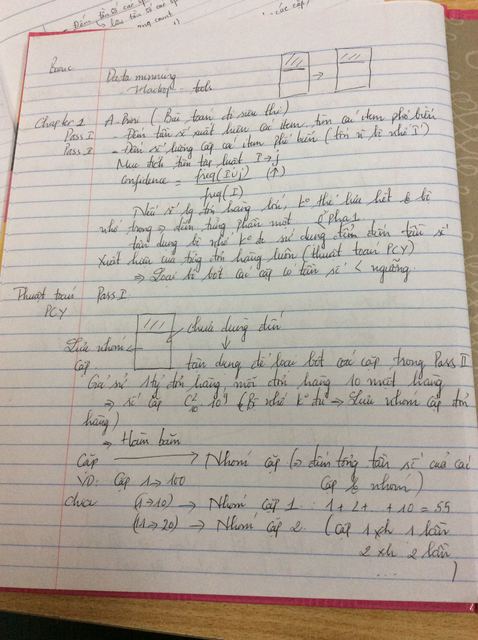 Đếm tần số các cặp
các cặp)
Data minning
Hadoop - tools
Chapter 1 A-Priori (Bài toán đi siêu thị)
Pass I - Đếm tần số xuất hiện các item, tìm các item phổ biến
Pass II - Đếm số lượng cặp các item phổ biến (trừ đi bộ nhớ I)
Mục tích tìm tập luật I → j
Confidence = freq(I∪j) (↑)
freq(I)
Nếu số lg đơn hàng lớn, ko thể lưu hết bộ
nhớ trong ⇒ đếm từng phần một ở pha 1
tận dụng bộ nhớ ko đc sử dụng đếm tần số
xuất hiện của từng đơn hàng luôn (thuật toán PCY)
⇒ Loại bỏ bớt các cặp có tần số < ngưỡng.
Thuật toán Pass I
PCY
chưa dùng đến
Lưu nhóm
cặp
tận dụng để loại bớt các cặp trong Pass II
Giả sử 1 tỷ đơn hàng mỗi đơn hàng 10 mặt hàng
⇒ số cặp C²₁₀ 10⁹ (Bộ nhớ ko đủ ⇒ Lưu nhóm cặp đơn
hàng)
⇒ Hàm băm
Cặp → Nhóm cặp (⇒ đếm tổng tần số của các
VD: Cặp 1 → 100 cặp nhóm)
chia (1→10) → Nhóm cặp 1 1+2+ +10 = 55
(11→20) → Nhóm cặp 2 (Cặp 1 xh 1 lần
2 xh 2 lần
... )